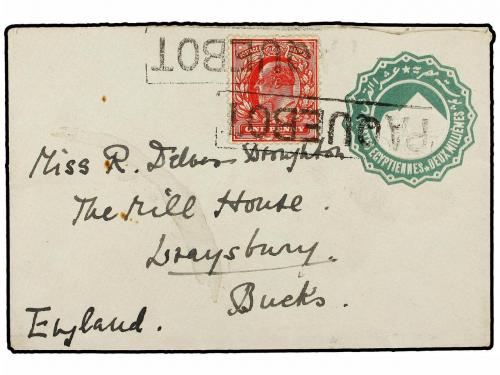 PAQUEBOT
PAQUEBOT
ONE PENNY
EGYPTIENNES DEUX MILLIEMES
Miss R. Delves Broughton
The Mill House.
Wraysbury.
Bucks.
England.